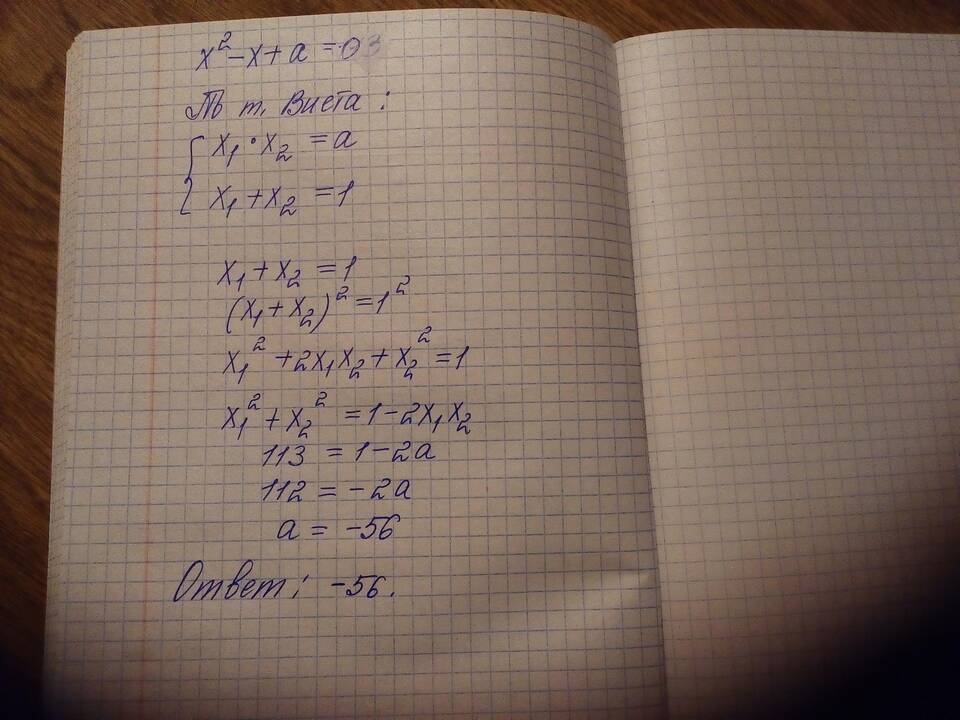 x² - x + a = 0
т. Виета:
x₁ · x₂ = a
x₁ + x₂ = 1
x₁ + x₂ = 1
(x₁ + x₂)² = 1²
x₁² + 2x₁x₂ + x₂² = 1
x₁² + x₂² = 1 - 2x₁x₂
113 = 1 - 2a
112 = -2a
a = -56
Ответ: -56.